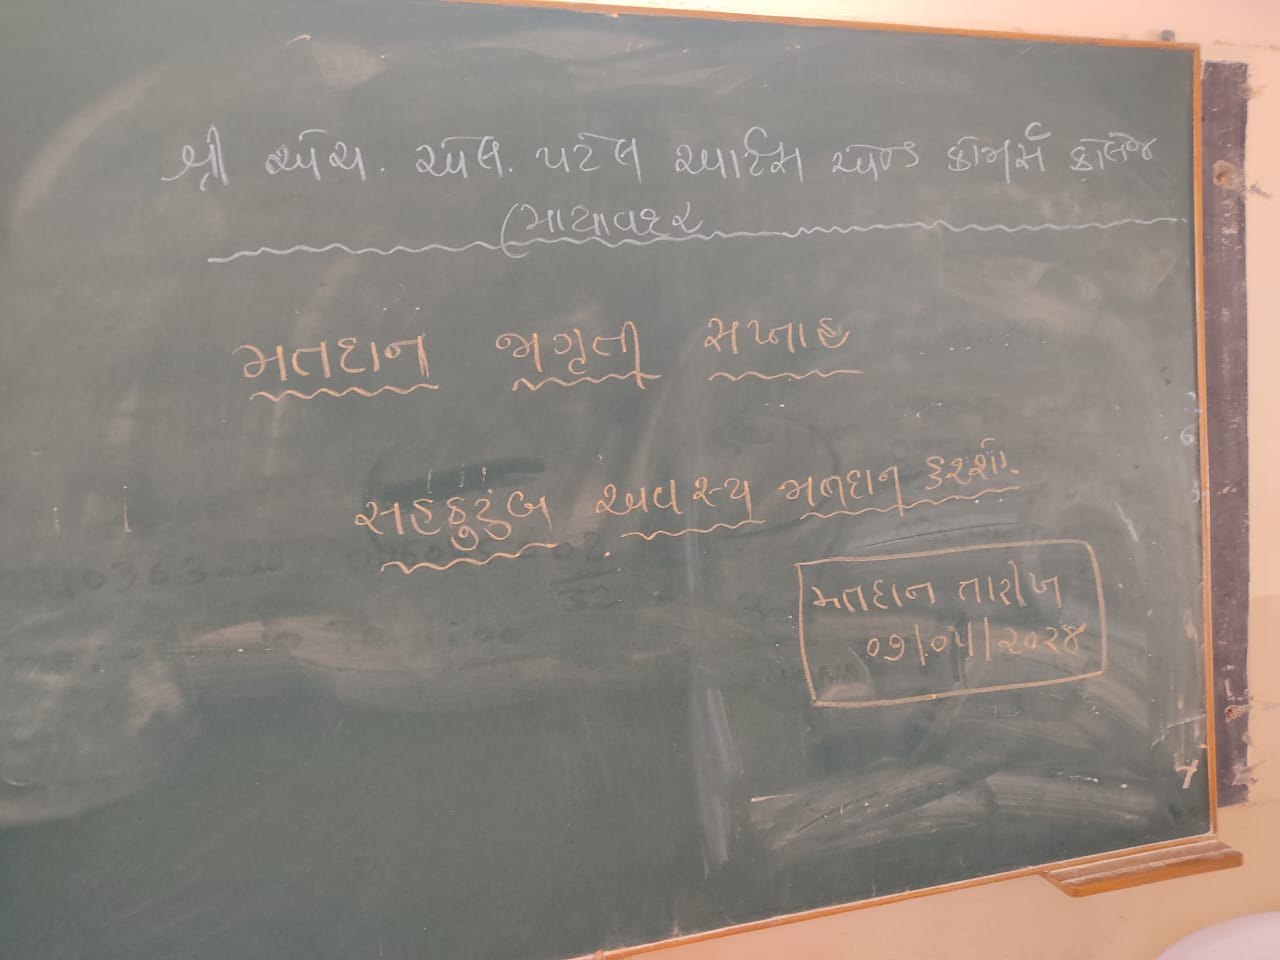 શ્રી એચ. એલ. પટેલ આર્ટસ એન્ડ કોમર્સ કોલેજ
ભાયાવદર
મતદાન જાગૃતી સપ્તાહ
સહકુટુંબ અવશ્ય મતદાન કરશો.
મતદાન તારીખ
૦૭/૦૫/૨૦૨૪